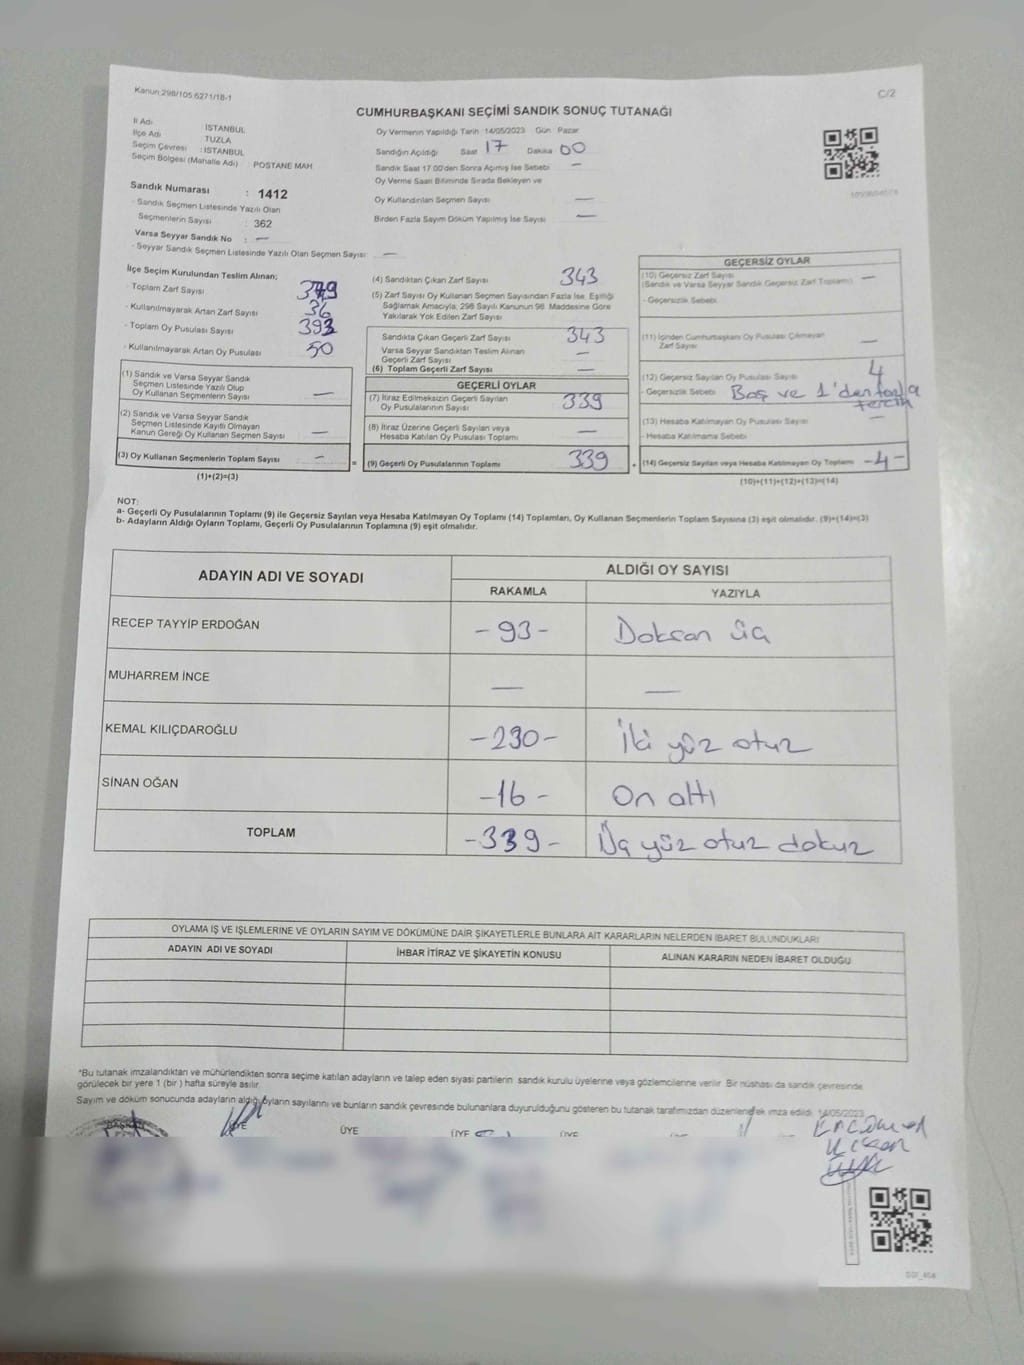 Kanun;298/105;6271/18-1
C/2
CUMHURBAŞKANI SEÇİMİ SANDIK SONUÇ TUTANAĞI
İl Adı : İSTANBUL
İlçe Adı : TUZLA
Seçim Çevresi : İSTANBUL
Seçim Bölgesi (Mahalle Adı) : POSTANE MAH
Oy Vermenin Yapıldığı Tarih 14/05/2023 Gün Pazar
Sandığın Açıldığı Saat 17 Dakika 00
Sandık Saat 17:00'den Sonra Açılmış İse Sebebi —
Oy Verme Saati Bitiminde Sırada Bekleyen ve
Oy Kullandırılan Seçmen Sayısı —
Birden Fazla Sayım Döküm Yapılmış İse Sayısı —
Sandık Numarası : 1412
- Sandık Seçmen Listesinde Yazılı Olan
Seçmenlerin Sayısı : 362
Varsa Seyyar Sandık No : —
- Seyyar Sandık Seçmen Listesinde Yazılı Olan Seçmen Sayısı: —
İlçe Seçim Kurulundan Teslim Alınan;
- Toplam Zarf Sayısı 379
- Kullanılmayarak Artan Zarf Sayısı 36
- Toplam Oy Pusulası Sayısı 393
- Kullanılmayarak Artan Oy Pusulası 50
(1) Sandık ve Varsa Seyyar Sandık
Seçmen Listesinde Yazılı Olup
Oy Kullanan Seçmenlerin Sayısı —
(2) Sandık ve Varsa Seyyar Sandık
Seçmen Listesinde Kayıtlı Olmayan
Kanun Gereği Oy Kullanan Seçmen Sayısı —
(3) Oy Kullanan Seçmenlerin Toplam Sayısı —
(1)+(2)=(3)
(4) Sandıktan Çıkan Zarf Sayısı 343
(5) Zarf Sayısı Oy Kullanan Seçmen Sayısından Fazla İse, Eşitliği
Sağlamak Amacıyla, 298 Sayılı Kanunun 98. Maddesine Göre
Yakılarak Yok Edilen Zarf Sayısı
Sandıkta Çıkan Geçerli Zarf Sayısı 343
Varsa Seyyar Sandıktan Teslim Alınan
Geçerli Zarf Sayısı —
(6) Toplam Geçerli Zarf Sayısı —
GEÇERLİ OYLAR
(7) İtiraz Edilmeksizin Geçerli Sayılan
Oy Pusulalarının Sayısı 339
(8) İtiraz Üzerine Geçerli Sayılan veya
Hesaba Katılan Oy Pusulası Toplamı —
= (9) Geçerli Oy Pusulalarının Toplamı 339
GEÇERSİZ OYLAR
(10) Geçersiz Zarf Sayısı —
(Sandık ve Varsa Seyyar Sandık Geçersiz Zarf Toplamı)
- Geçersizlik Sebebi
(11) İçinden Cumhurbaşkanı Oy Pusulası Çıkmayan
Zarf Sayısı —
(12) Geçersiz Sayılan Oy Pusulası Sayısı 4
- Geçersizlik Sebebi Boş ve 1'den fazla
tercih
(13) Hesaba Katılmayan Oy Pusulası Sayısı —
- Hesaba Katılmama Sebebi
+ (14) Geçersiz Sayılan veya Hesaba Katılmayan Oy Toplamı -4-
(10)+(11)+(12)+(13)=(14)
NOT:
a- Geçerli Oy Pusulalarının Toplamı (9) ile Geçersiz Sayılan veya Hesaba Katılmayan Oy Toplamı (14) Toplamları, Oy Kullanan Seçmenlerin Toplam Sayısına (3) eşit olmalıdır. (9)+(14)=(3)
b- Adayların Aldığı Oyların Toplamı, Geçerli Oy Pusulalarının Toplamına (9) eşit olmalıdır.
ADAYIN ADI VE SOYADI ALDIĞI OY SAYISI
RAKAMLA YAZIYLA
RECEP TAYYİP ERDOĞAN -93- Doksan üç
MUHARREM İNCE — —
KEMAL KILIÇDAROĞLU -230- İki yüz otuz
SİNAN OĞAN -16- On altı
TOPLAM -339- Üç yüz otuz dokuz
OYLAMA İŞ VE İŞLEMLERİNE VE OYLARIN SAYIM VE DÖKÜMÜNE DAİR ŞİKAYETLERLE BUNLARA AİT KARARLARIN NELERDEN İBARET BULUNDUKLARI
ADAYIN ADI VE SOYADI İHBAR İTİRAZ VE ŞİKAYETİN KONUSU ALINAN KARARIN NEDEN İBARET OLDUĞU
*Bu tutanak imzalandıktan ve mühürlendikten sonra seçime katılan adayların ve talep eden siyasi partilerin sandık kurulu üyelerine veya gözlemcilerine verilir. Bir nüshası da sandık çevresinde
görülecek bir yere 1 (bir) hafta süreyle asılır.
Sayım ve döküm sonucunda adayların aldığı oyların sayılarını ve bunların sandık çevresinde bulunanlara duyurulduğunu gösteren bu tutanak tarafımızdan düzenlenerek imza edildi. 14/05/2023
BAŞKAN ÜYE ÜYE ÜYE ÜYE